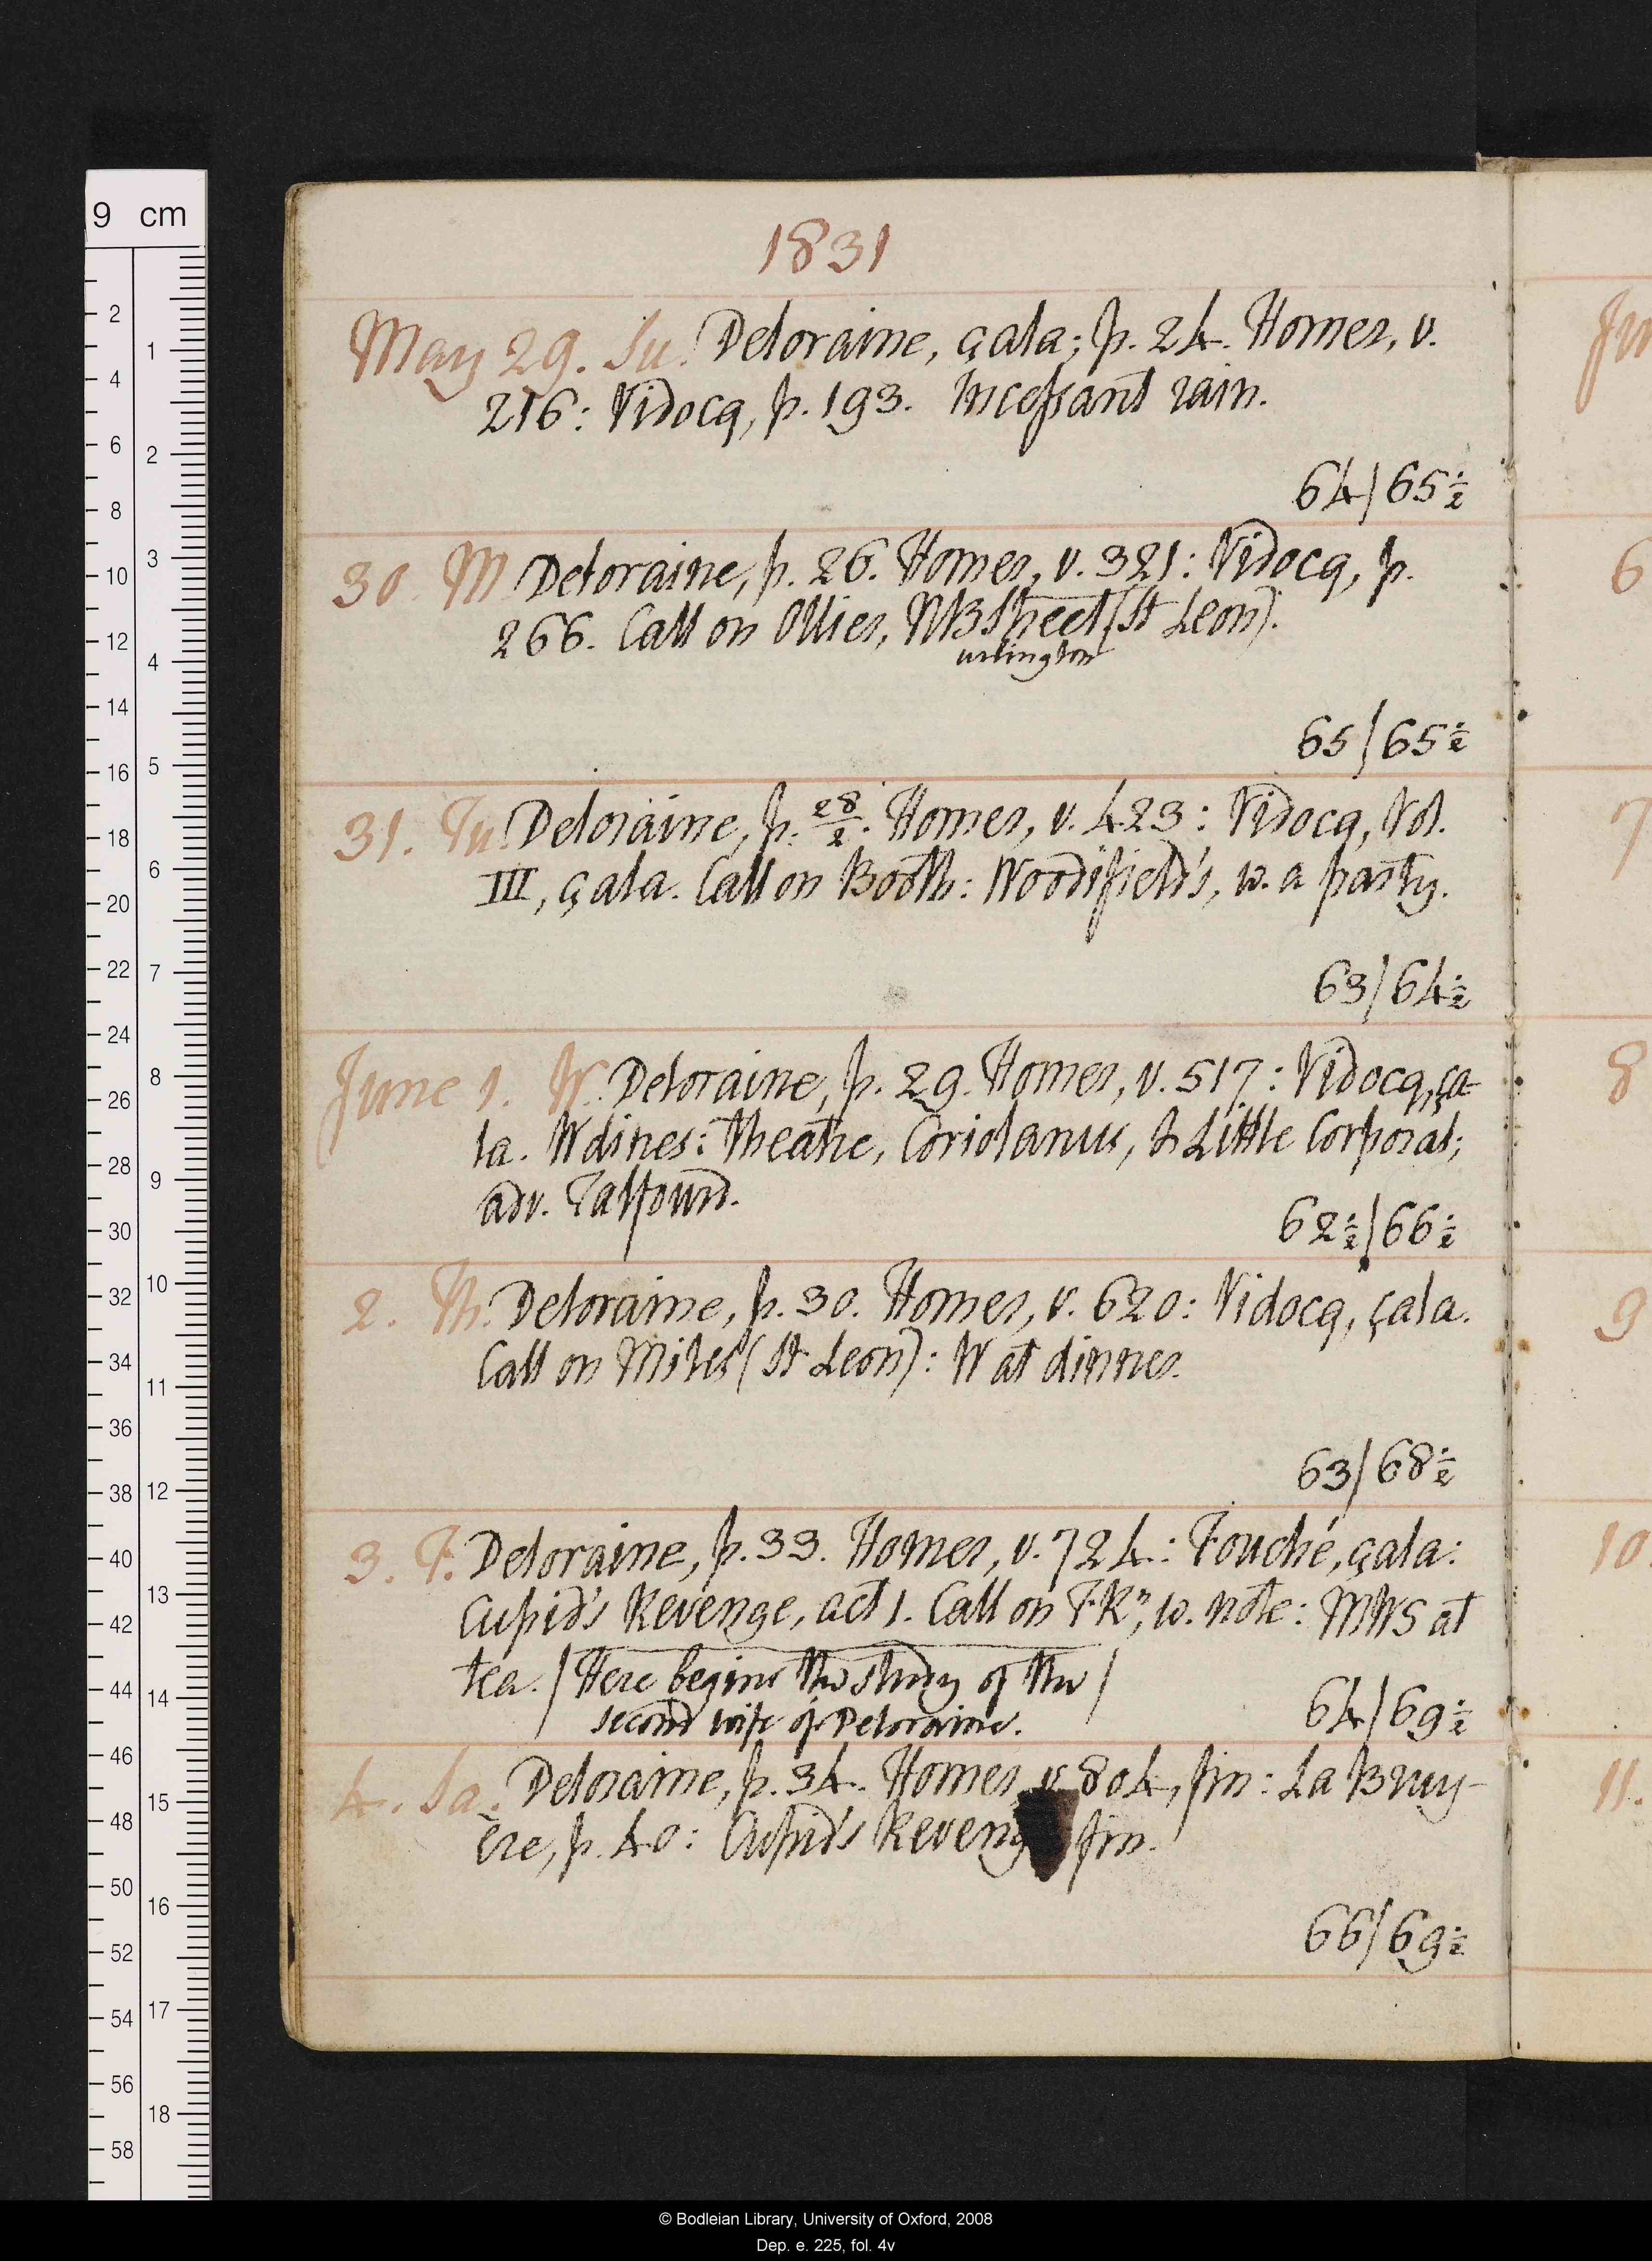 1831
May 29. Su. Deloraine, çala; p. 24. Homer, v.
216: Vidocq, p. 193. Incessant rain.
64/65½
30. M Deloraine, p. 26. Homer, v. 321: Vidocq, p.
266. Call on Ollier, NBStreet (St Leon).
urlington
65/65½
31. Tu. Deloraine, p. 28/2. Homer, v. 423: Vidocq, Vol.
III, çala. Call on Booth: Woodifield's, w. a party.
63/64½
June 1. W. Deloraine, p. 29. Homer, v. 517: Vidocq, ça-
la. W dines: Theatre, Coriolanus, & Little Corporal;
adv. Talfourd.
62½/66½
2. Th. Deloraine, p. 30. Homer, v. 620: Vidocq, çala.
Call on Miles (St Leon): W at dinner.
63/68½
3. F. Deloraine, p. 33. Homer, v. 724: Fouché, çala:
Cupid's Revenge, act 1. Call on FKn, w. note: MWS at
tea. / Here begins the story of the /
second wife of Deloraine.
64/69½
4. Sa. Deloraine, p. 34. Homer, v. 804, fin: La Bruy-
ère, p. 40: Cupid's Revenge fin.
66/69½
6
7
8
9
10.
11.
9 cm
2
4
6
8
10
12
14
16
18
20
22
24
26
28
30
32
34
36
38
40
42
44
46
48
50
52
54
56
58
1
2
3
4
5
6
7
8
9
10
11
12
13
14
15
16
17
18
© Bodleian Library, University of Oxford, 2008
Dep. e. 225, fol. 4v